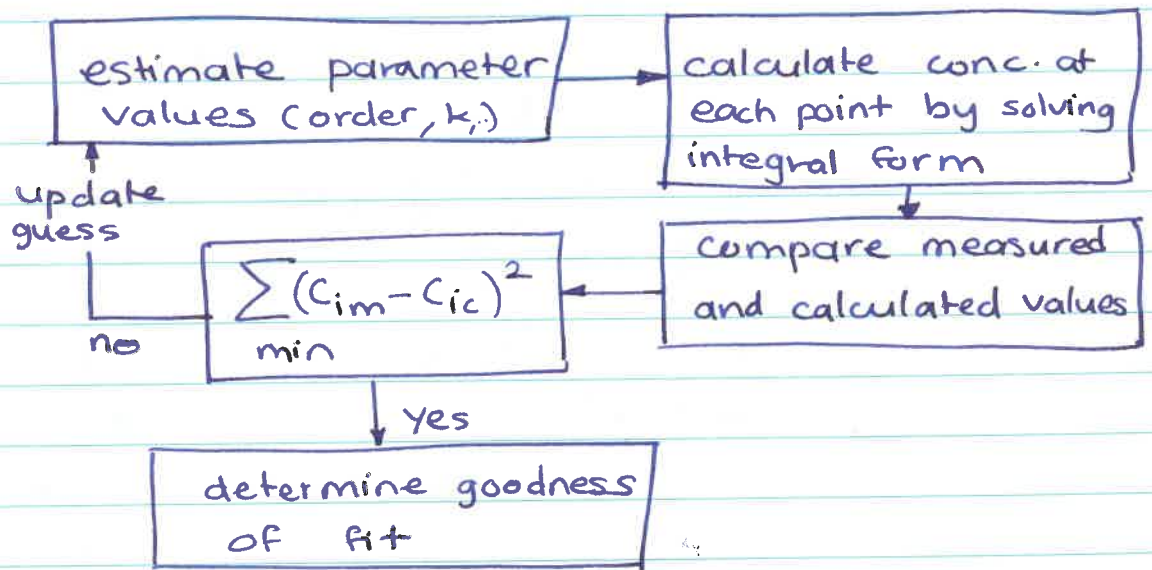 estimate parameter
values (order, k,..)
calculate conc. at
each point by solving
integral form
compare measured
and calculated values
∑(Cim - Cic)²
min
no
update
guess
yes
determine goodness
of fit